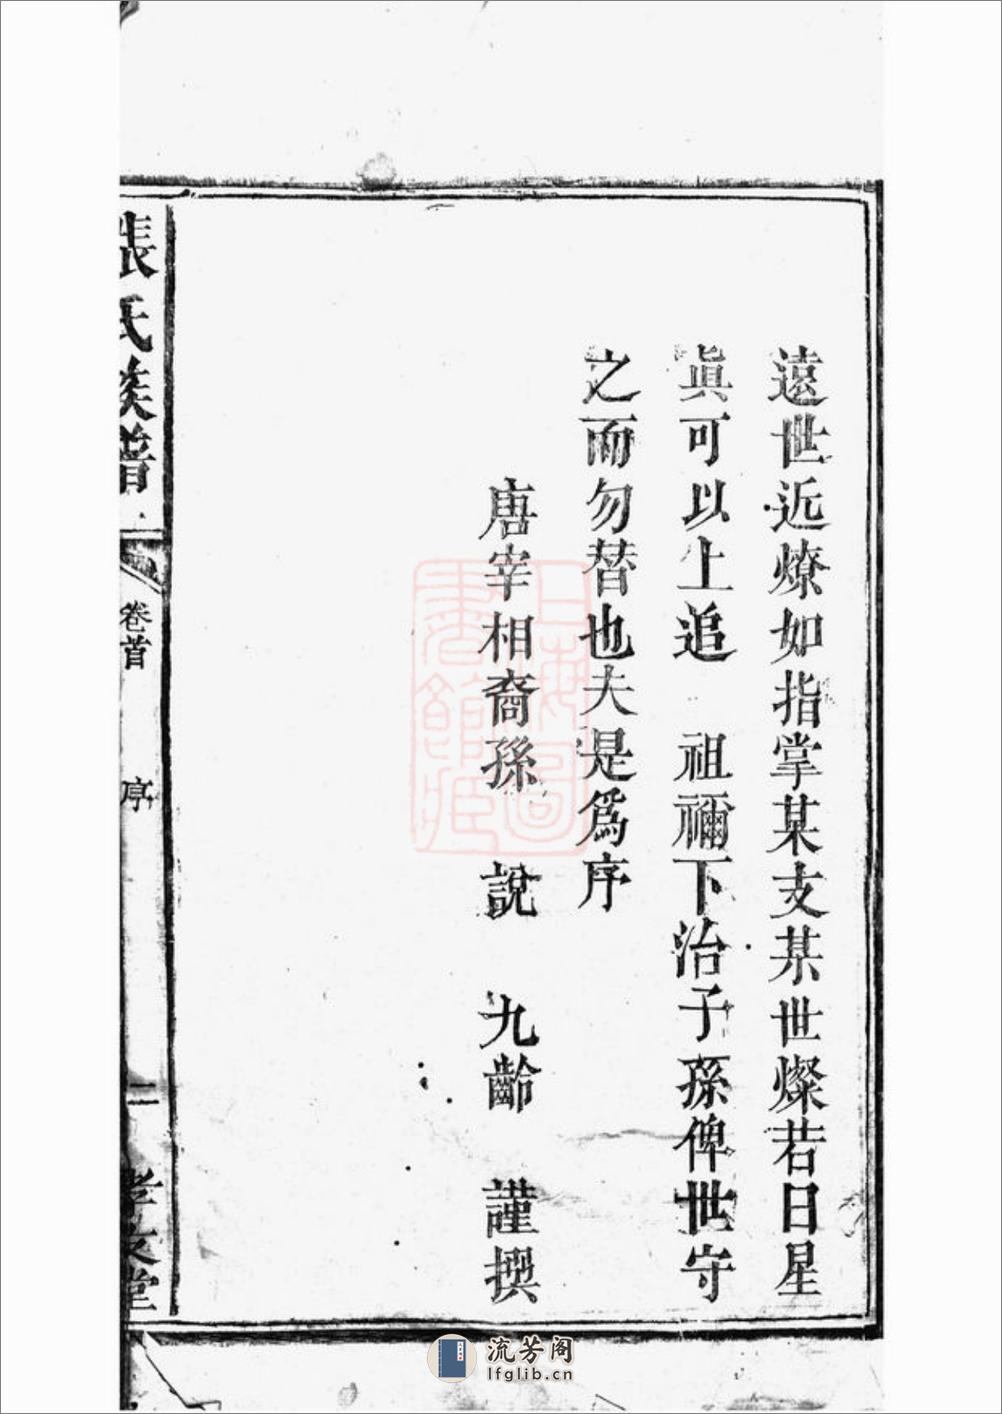 遠世近燎如指掌某支某世燦若日星
眞可以上追　祖禰下治子孫俾世守
之而勿替也夫是爲序
唐宰相裔孫　說　九齡　謹撰
張氏族譜
卷首　序　一
孝友堂
上海圖書館藏
流芳阁
lfglib.cn